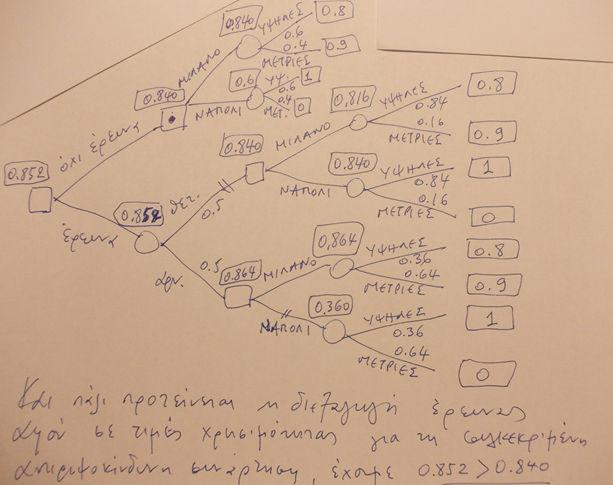 0.840
ΥΨΗΛΕΣ
0.6
0.8
0.4
ΜΕΤΡΙΕΣ
0.9
ΜΙΛΑΝΟ
0.840
0.6
ΥΨ.
0.6
1
ΝΑΠΟΛΙ
0.4
ΜΕΤ.
0
0.852
όχι έρευνα
0.816
ΥΨΗΛΕΣ
0.84
0.8
ΜΙΛΑΝΟ
0.16
ΜΕΤΡΙΕΣ
0.9
0.840
ΝΑΠΟΛΙ
0.840
ΥΨΗΛΕΣ
0.84
1
0.16
ΜΕΤΡΙΕΣ
0
έρευνα
0.852
θετ.
0.5
0.5
αρν.
0.864
ΜΙΛΑΝΟ
0.864
ΥΨΗΛΕΣ
0.36
0.8
0.64
ΜΕΤΡΙΕΣ
0.9
ΝΑΠΟΛΙ
0.360
ΥΨΗΛΕΣ
0.36
1
0.64
ΜΕΤΡΙΕΣ
0
Και πάλι προτείνεται η διεξαγωγή έρευνας
αφού σε τιμές χρησιμότητας για τη συγκεκριμένη
αντιριψοκίνδυνη συνάρτηση, έχουμε 0.852 > 0.840